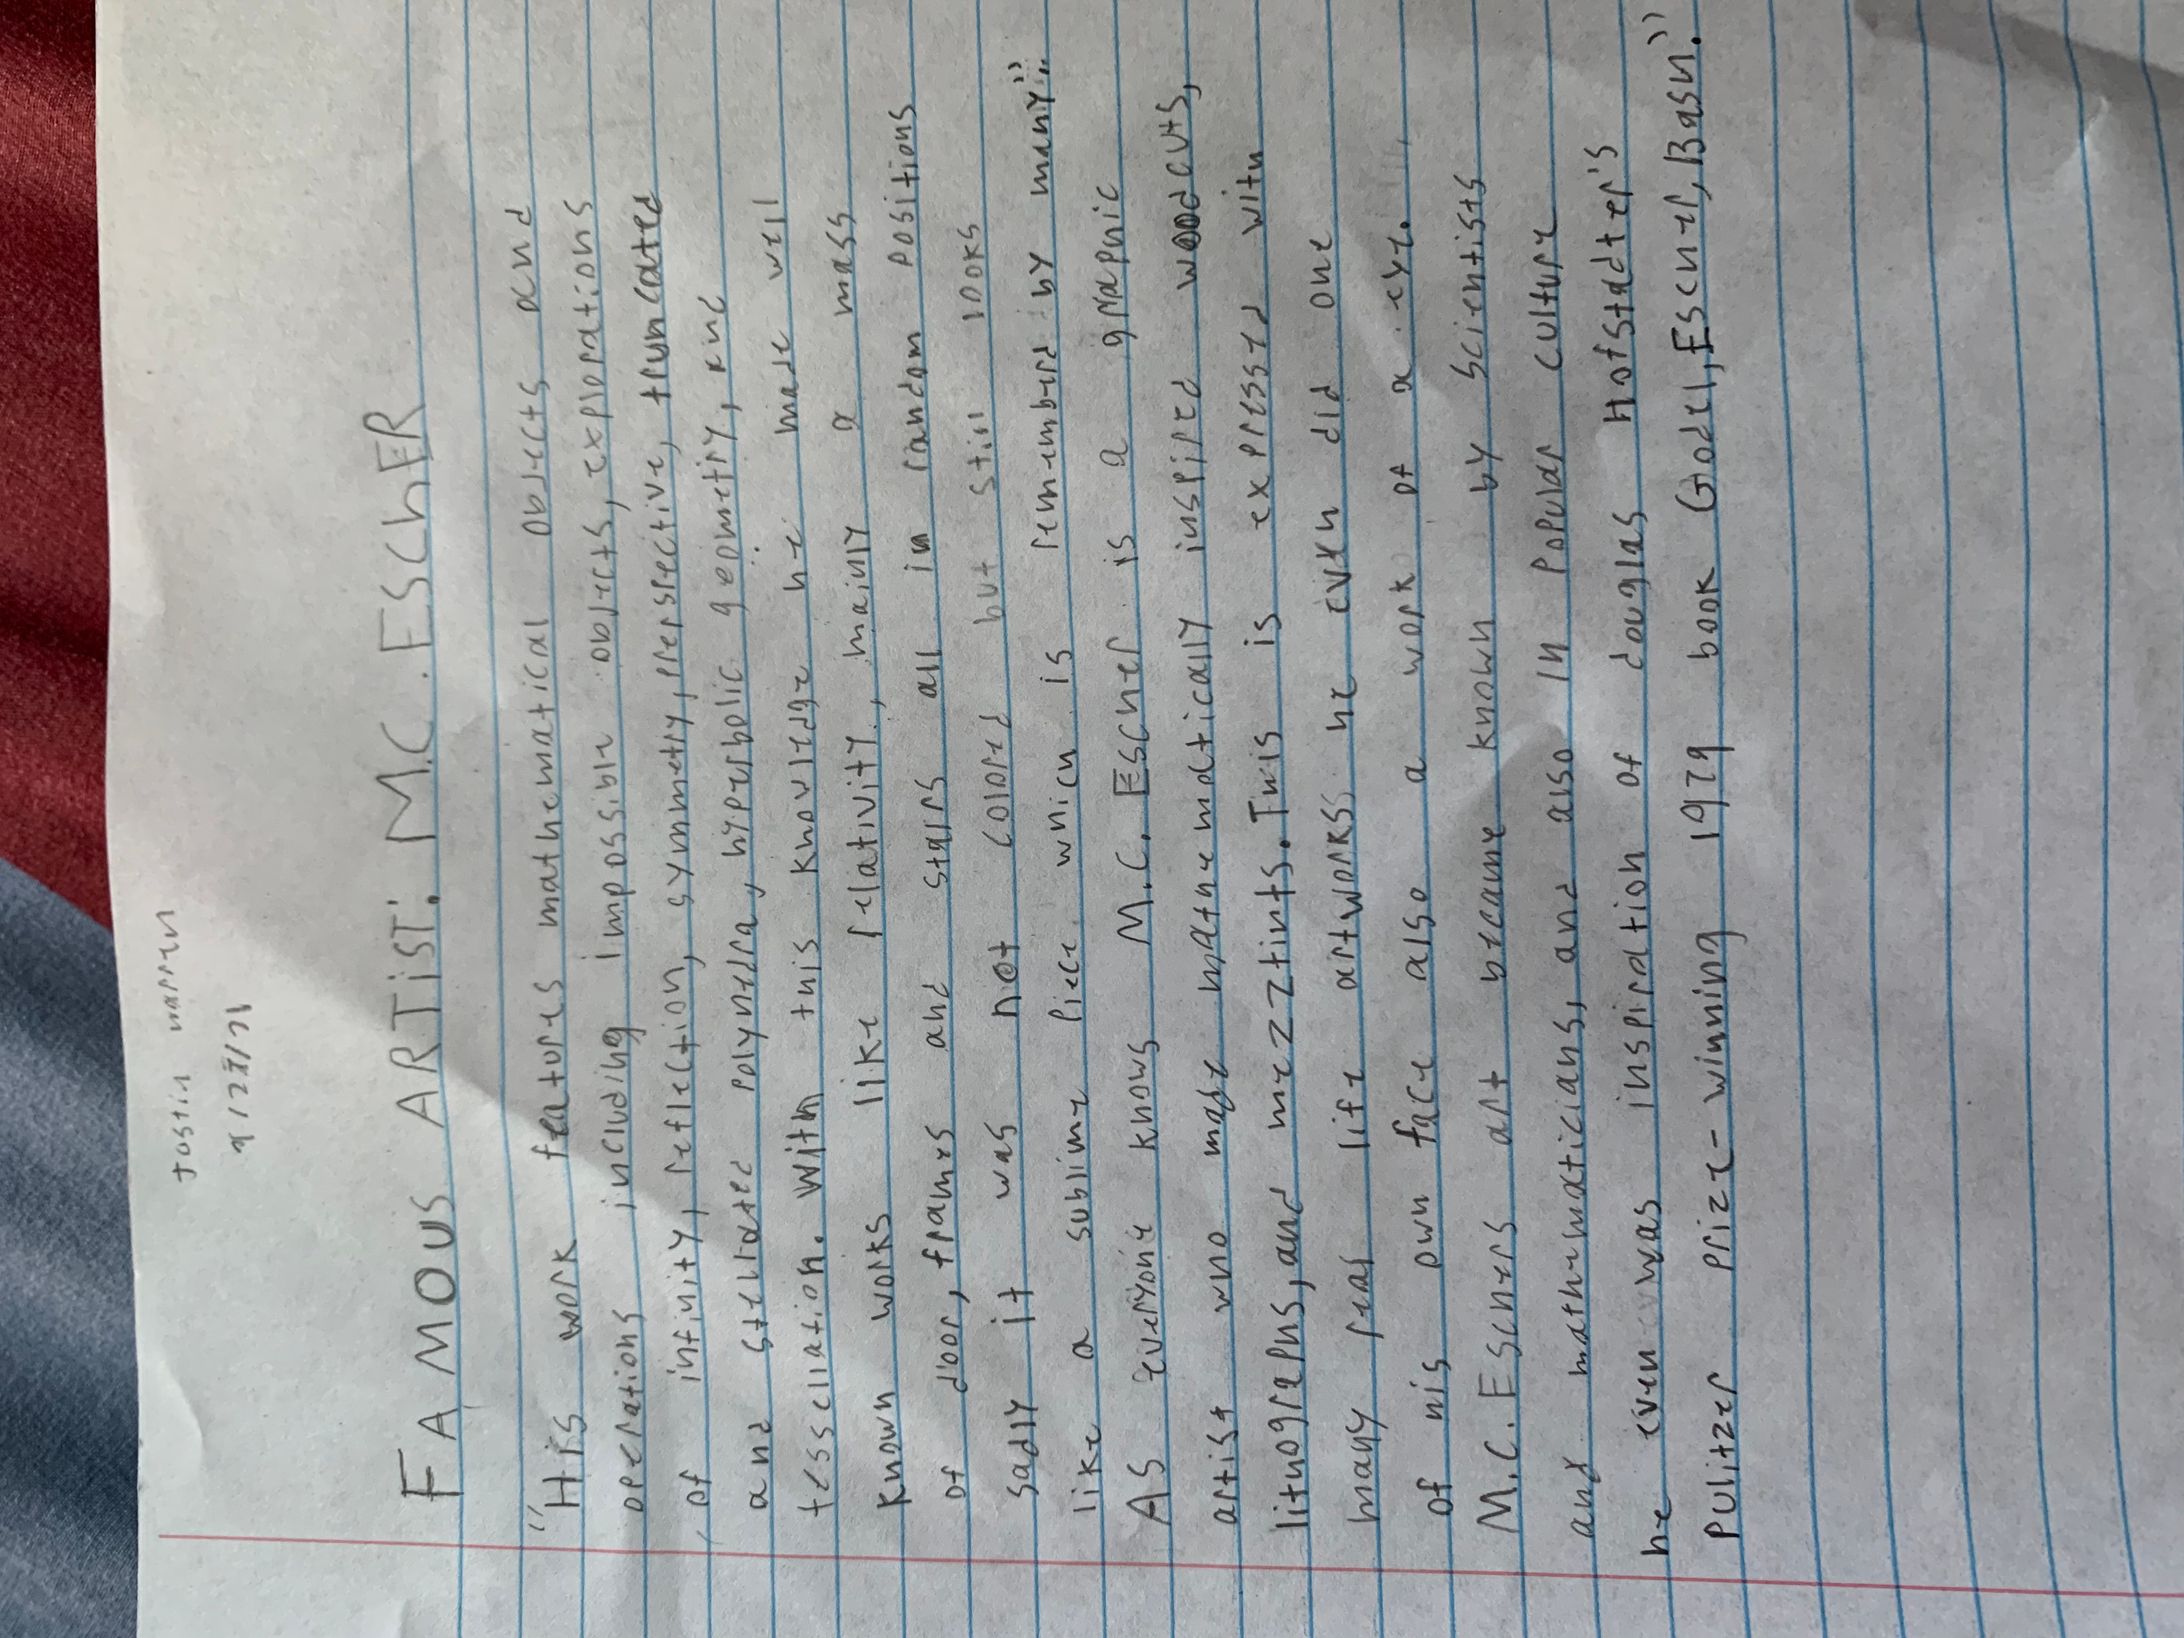 FAMOUS ARTIST: M.C. ESChER
"His work features mathematical objects and
operations including impossible objects, explorations
of infinity, reflection, symmetry, perspective, truncated
and stellated polyhedra, hyperbolic geometry, and
tessellation. With this knowledge he made well
known works like relativity, mainly a mass
of door, frames and stairs all in random positions
sadly it was not colored but still looks
like a sublime piece which is remembered by many".
As everyone knows M.C. Escher is a graphic
artist who made mathematically inspired woodcuts,
lithographs, and mezztints. This is expressed with
many real life artworks he even did one
of his own face also a work of a eye.
M.C. Eschers art became known by scientists
and mathematicians, and also in popular culture
he even was inspiration of douglas Hofstadter's
Pulitzer prize-winning 1979 book Godel, Escher, Bash."